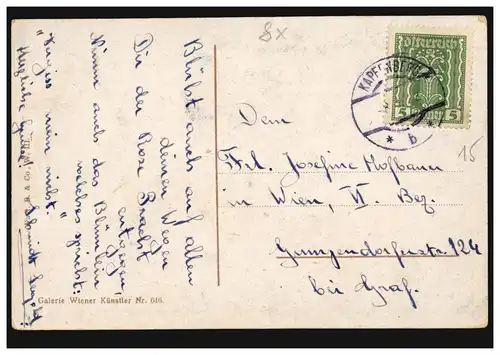 Blüht auch auf allen
deinen Wegen
Dir der Rose Pracht
entgegen,
Nimm auch das Blümlein
welches spricht:
"Vergiss mein nicht."
Herzliche Grüsse
Schmidt
B. K. & Co. W. III.
Galerie Wiener Künstler Nr. 616.
8x
österreich
5 5
KAPFENBERG
* b
15
Dem
Frl. Josefine Hofbauer
in Wien, VI. Bez.
Gumpendorfstr. 124
bei Graf.